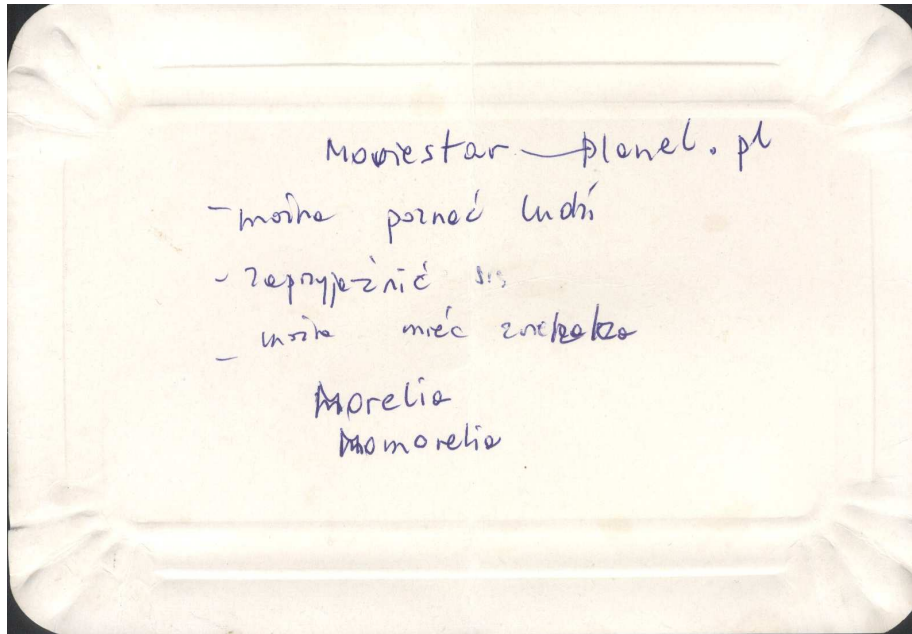 Moviestar planet.pl
- można poznać ludzi
- zaprzyjaźnić się
- można mieć zwierzaka
Amorelia
Amomorelia